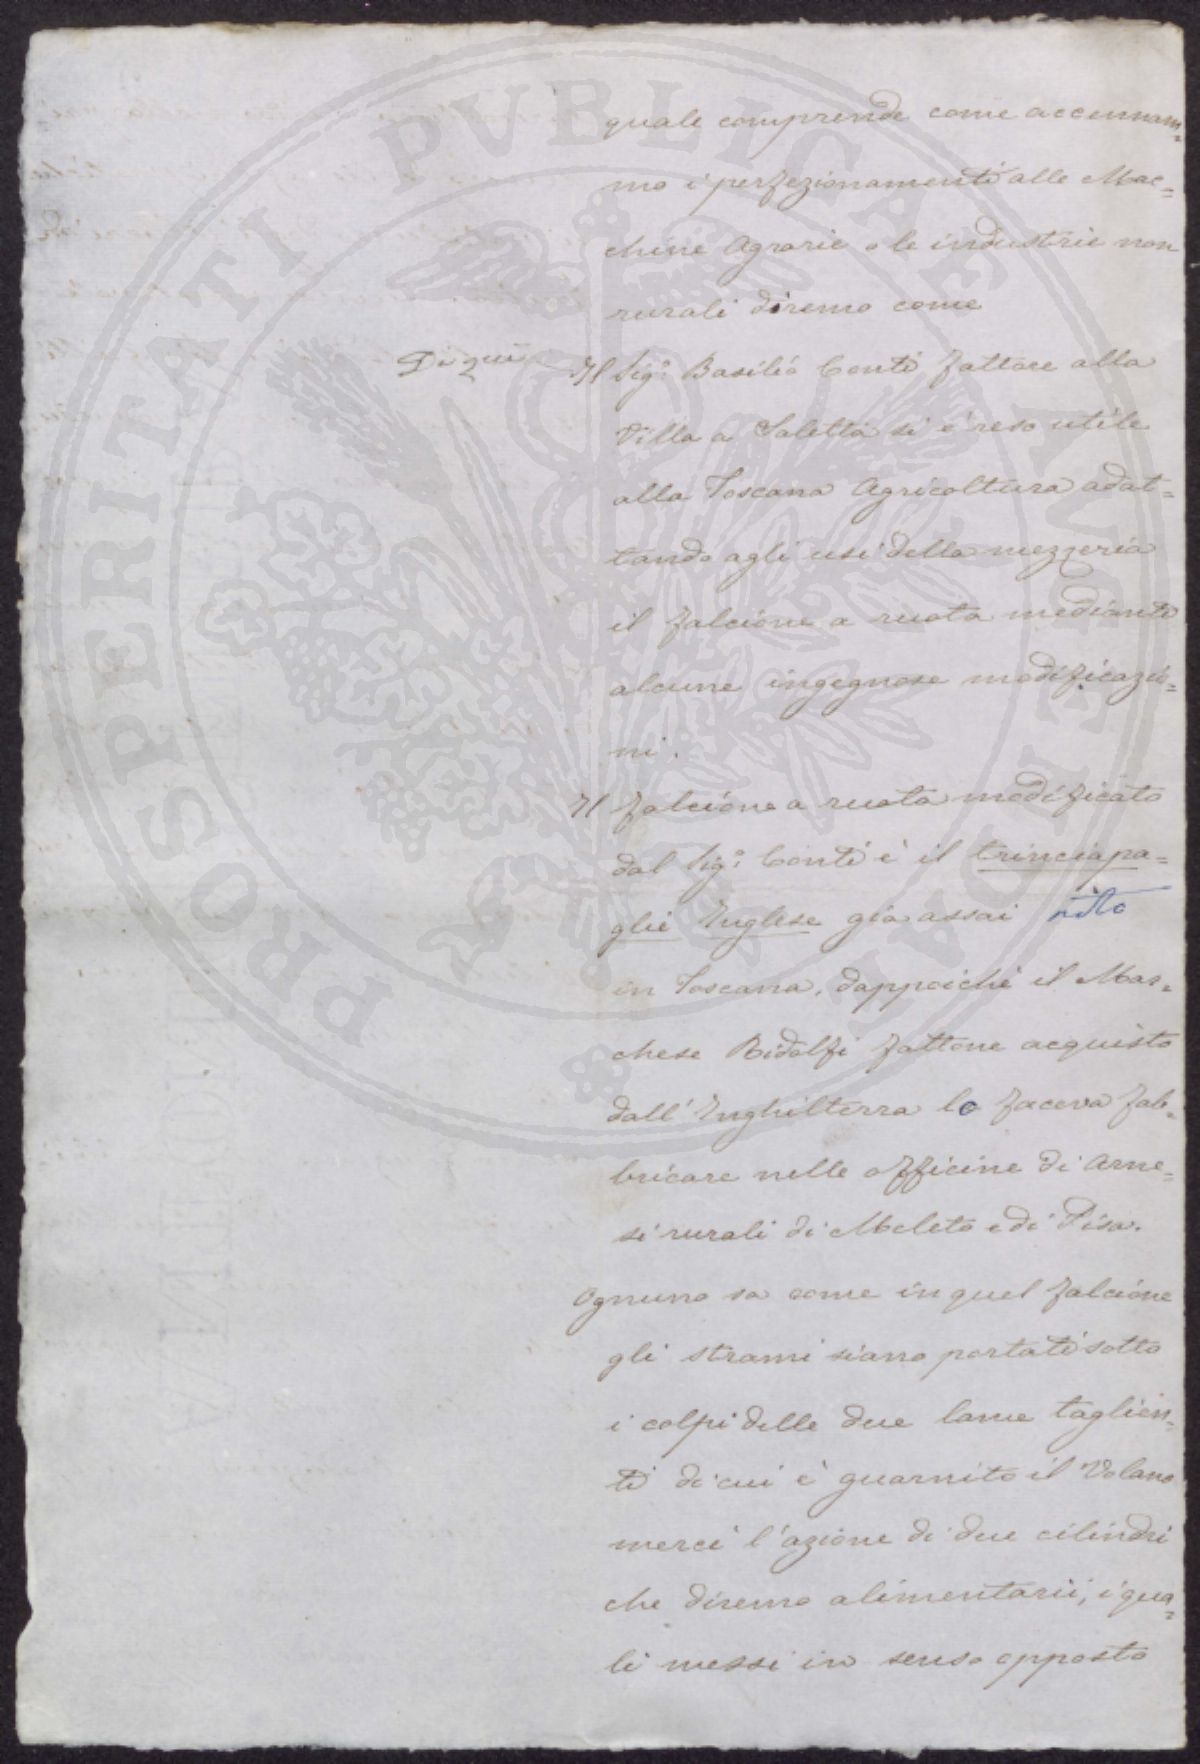 quale comprende come accennam=
mo i perfezionamenti alle Mac=
chine Agrarie o le industrie non
rurali diremo come
Di qui
Il Sig.r Basilio Conti fattore alla
Villa a Saletta si è reso utile
alla Toscana Agricoltura adat=
tando agli usi della mezzeria
il falcione a ruota mediante
alcune ingegnose modificazio=
ni.
Il falcione a ruota modificato
dal Sig.r Conti è il trinciapa=
glie Inglese già assai noto
in Toscana, dappoichè il Mar=
chese Ridolfi fattone acquisto
dall'Inghilterra lo faceva fab=
bricare nelle officine di Arne=
si rurali di Meleto e di Pisa.
Ognuno sa come in quel falcione
gli strami siano portati sotto
i colpi delle due lame taglien=
ti di cui è guarnito il Volano
mercè l'azione di due cilindri
che diremo alimentarii, i qua=
li messi in senso opposto
PROSPERITATI PVBLICAE AVGENDAE